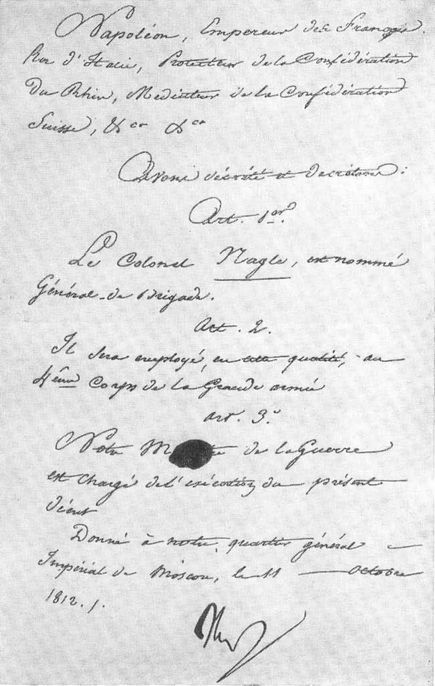 Napoléon, Empereur des Français.
Roi d'Italie, Protecteur de la Confédération
Du Rhin, Mediateur de la Confédération
Suisse, &ca &ca
Avons décrété et décrétons :
Art. 1er.
Le Colonel Nagle, est nommé
Général de Brigade.
Art. 2.
Il sera employé, en cette qualité, au
4ème Corps de la Grande armée
art. 3.
Notre M de la Guerre
est chargé de l'exécution du présent
décret
Donné à notre quartier général
Impérial de Moscou, le 11 octobre
1812.